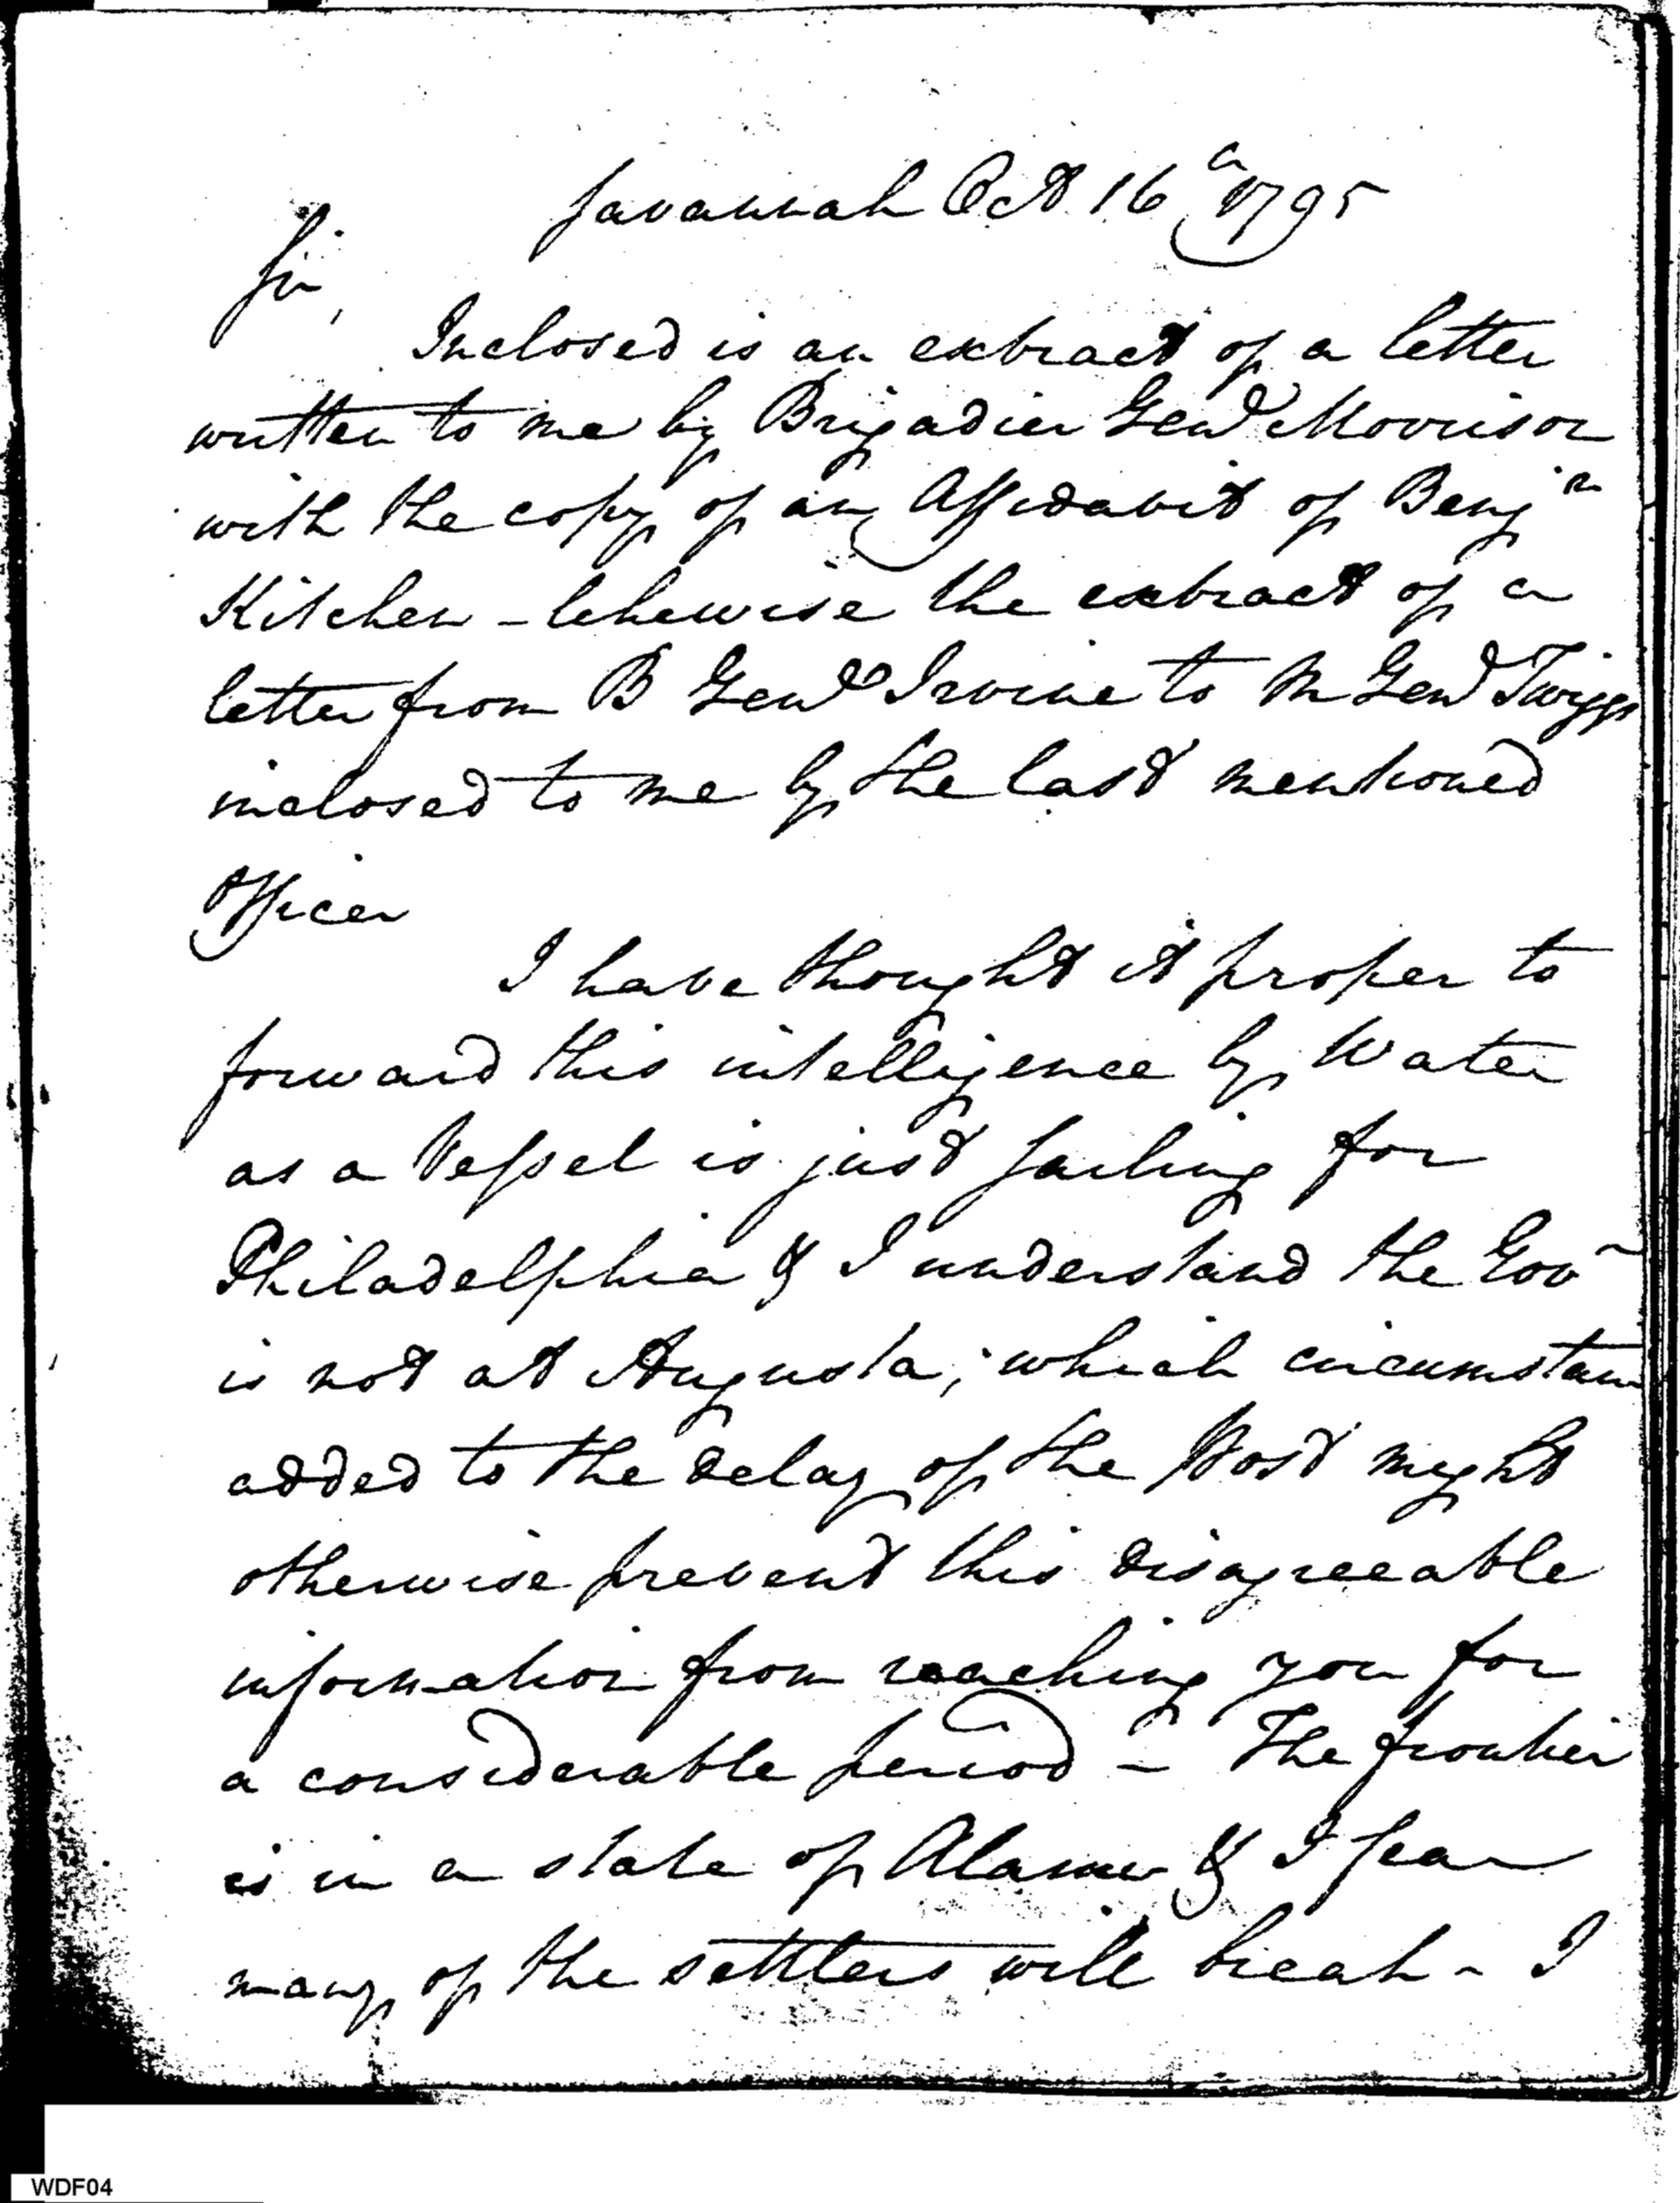 Savannah Oct 16th 1795
Sir,
Inclosed is an extract of a letter
written to me by Brigadier Genl Morrison
with the copy of an Affidavit of Benjn
Kitchen - likewise the extract of a
letter from B Genl Irvine to M Genl Twiggs
inclosed to me by the last mentioned
Officer
I have thought it proper to
forward this intelligence by Water
as a Vessel is just sailing for
Philadelphia & I understand the Gov
is not at Augusta; which circumstan
added to the delay of the Post might
otherwise prevent this disagreeable
information from reaching you for
a considerable period - The frontier
is in a state of Alarm & I fear
many of the settlers will break - I
WDF04